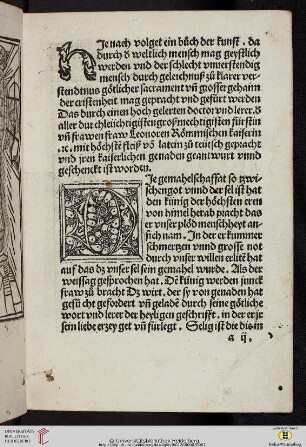 HJe nach volget ein bůch der kunst . da
durch d weltlich mensch mag geystlich
werden vnd der schlecht vnuerstendig
mensch durch geleichnuß zů klarer ver-
stendtnus götlicher sacrament vñ grosser geham
der cristenheit mag gepracht vnd gefürt werden
Das durch einen hoch gelerten doctor vnd lerer. S
aller durchleichtigisten großmechtigisten fürstin
vñ frawen fraw Leonoren Römmischen kaiserin
.ꝛc. mit höchstē fleiß võ latein zů teütsch gepracht
vnd jren kaiserlichen genaden geantwurt vnnd
geschenckt ist worden.
DJe gemahelschaffat so zwi
schen got vnnd der sel ist hat
den künig der höchsten eren
von himel herab pracht das
er vnser plöd menschheyt an
sich nam. In der er kummer
schmertzen vnnd grosse not
durch vnser willen erlitē hat
auf das dz vnser sel sein gemahel wurde. Als der
weissag gesprochen hat. Dē künig werden junck
fraw zů bracht Dz wirt. der sy von genaden hat
gesůcht gefordert vñ geladē durch seine götliche
wort vnd lerer der heyligen geschrifft. in der er jr
sein liebe erzeyget vñ fürlegt. Selig ist die dis in
a ij.
UNIVERSITÄTS-
BIBLIOTHEK
HEIDELBERG
© Universitätsbibliothek Heidelberg